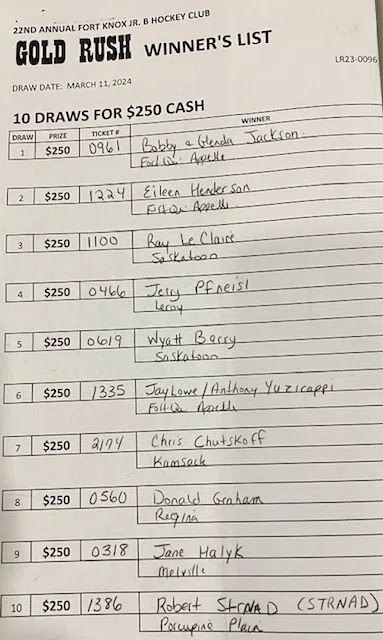 22ND ANNUAL FORT KNOX JR. B HOCKEY CLUB
GOLD RUSH WINNER'S LIST
LR23-0096
DRAW DATE: MARCH 11, 2024
10 DRAWS FOR $250 CASH
DRAW PRIZE TICKET # WINNER
1 $250 0961 Bobby & Glenda Jackson
Fort Qu' Appelle
2 $250 1224 Eileen Henderson
Fort Qu' Appelle
3 $250 1100 Ray Le Claire
Saskatoon
4 $250 0466 Jerry Pfneisl
Leroy
5 $250 0619 Wyatt Barry
Saskatoon
6 $250 1335 Jay Lowe / Anthony Yuzicappi
Fort Qu Appelle
7 $250 2174 Chris Chutskoff
Kamsack
8 $250 0560 Donald Graham
Regina
9 $250 0318 Jane Halyk
Melville
10 $250 1386 Robert StrNAD (STRNAD)
Porcupine Plain